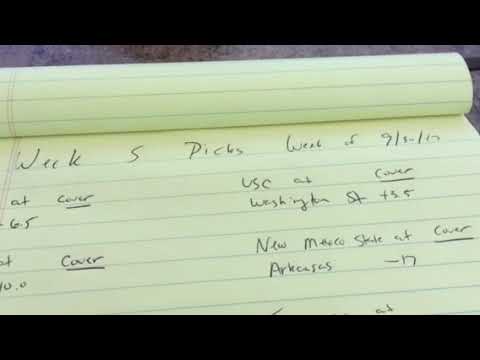 Week 5 Picks Week of 9/30/17
at cover
6.5
at cover
10.0
USC at cover
Washington St +3.5
New Mexico State at cover
Arkansas -17
at